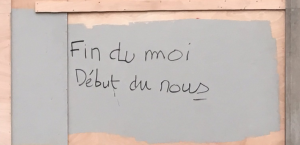 Fin du moi
Début du nous